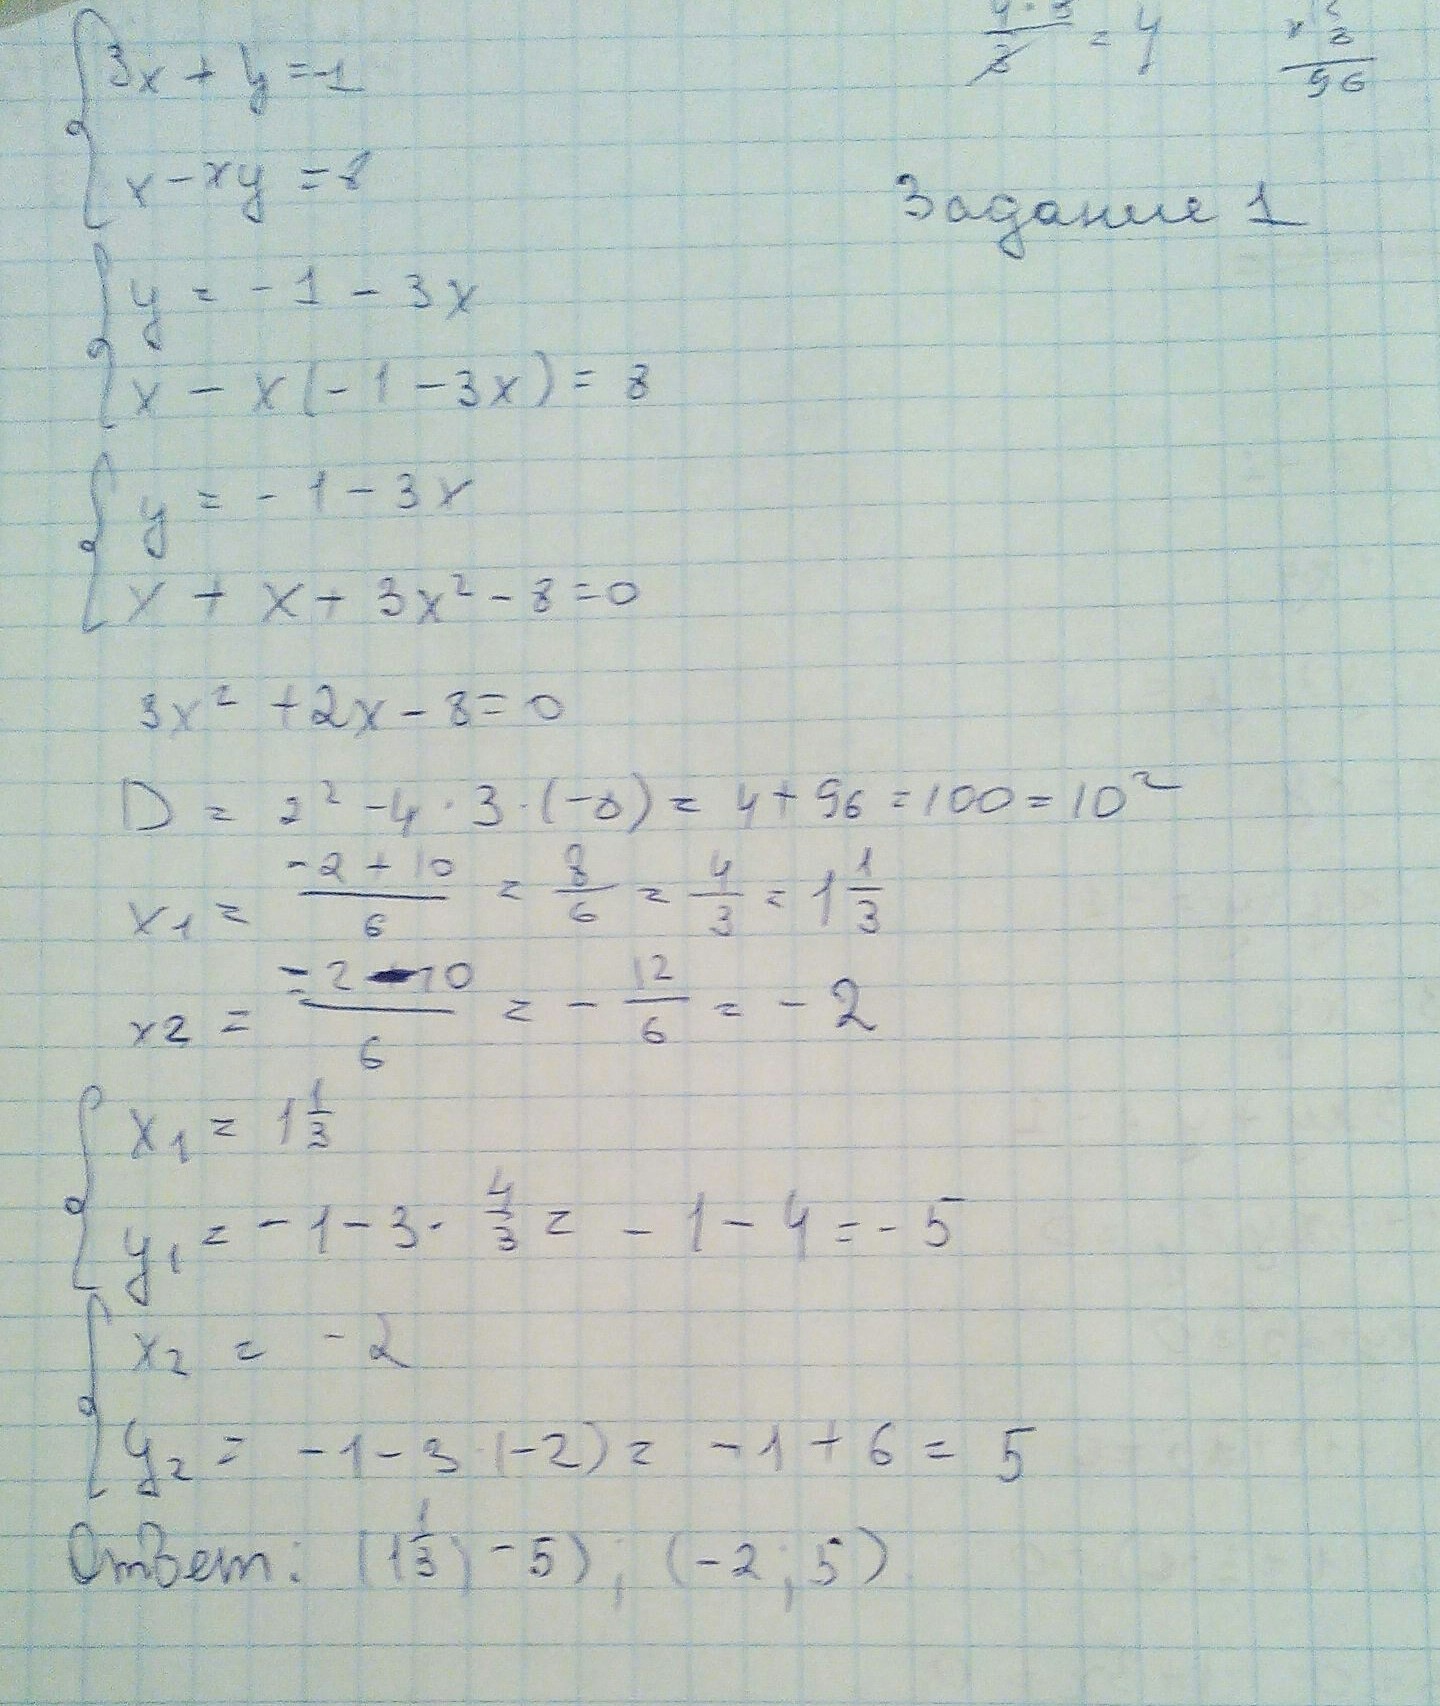 4·3/3 = 4
96
{3x + y = -1
x - xy = 8
Задание 1
{y = -1 - 3x
x - x(-1 - 3x) = 8
{y = -1 - 3x
x + x + 3x² - 8 = 0
3x² + 2x - 8 = 0
D = 2² - 4 · 3 · (-8) = 4 + 96 = 100 = 10²
x1 = (-2 + 10)/6 = 8/6 = 4/3 = 1 1/3
x2 = (-2 - 10)/6 = - 12/6 = - 2
{x1 = 1 1/3
y1 = -1 - 3 · 4/3 = - 1 - 4 = - 5
{x2 = -2
y2 = -1 - 3 · (-2) = -1 + 6 = 5
Ответ: (1 1/3; -5); (-2; 5)